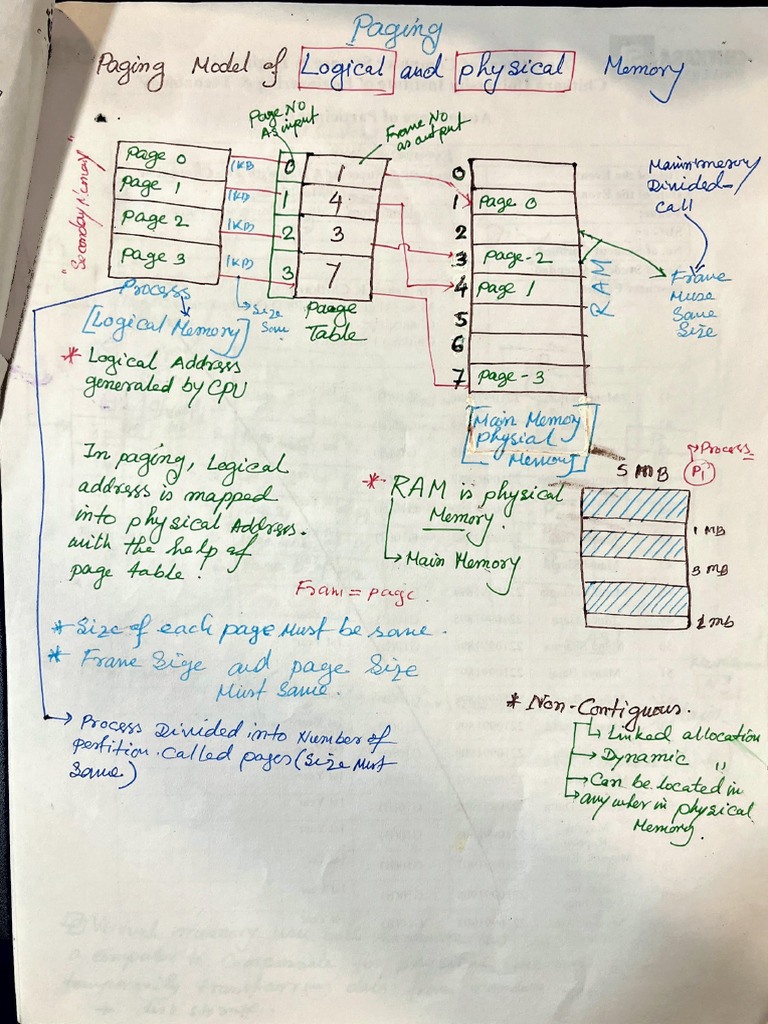 Paging
Paging Model of Logical and physical Memory
Page No
As input
Frame No
as output
"Seconday Memory"
Page 0
Page 1
Page 2
Page 3
1KB
1KB
1KB
1KB
0
1
2
3
1
4
3
7
Paage
Table
Size
Same
Process
[Logical Memory]
0
1
2
3
4
5
6
7
Page 0
Page-2
Page 1
Page-3
RAM
Main memory
Divided
Call
Frame
Muse
Same
Size
[Main Memory
Physial
Memory]
* Logical Address
generated by CPU
In paging, Logical
address is mapped
into physical Address.
with the help of
page table.
* RAM is physical
Memory.
Main Memory
Fram = page.
5 MB
Process
P1
1 MB
3 MB
1 mb
* Size of each page Must be same.
* Frame Size and page Size
Must Same.
Process Divided into Number of
pertition. Called pages (Size Must
Same)
* Non-Contiguous.
Linked allocation
Dynamic "
Can be located in
any wher in physical
Memory.